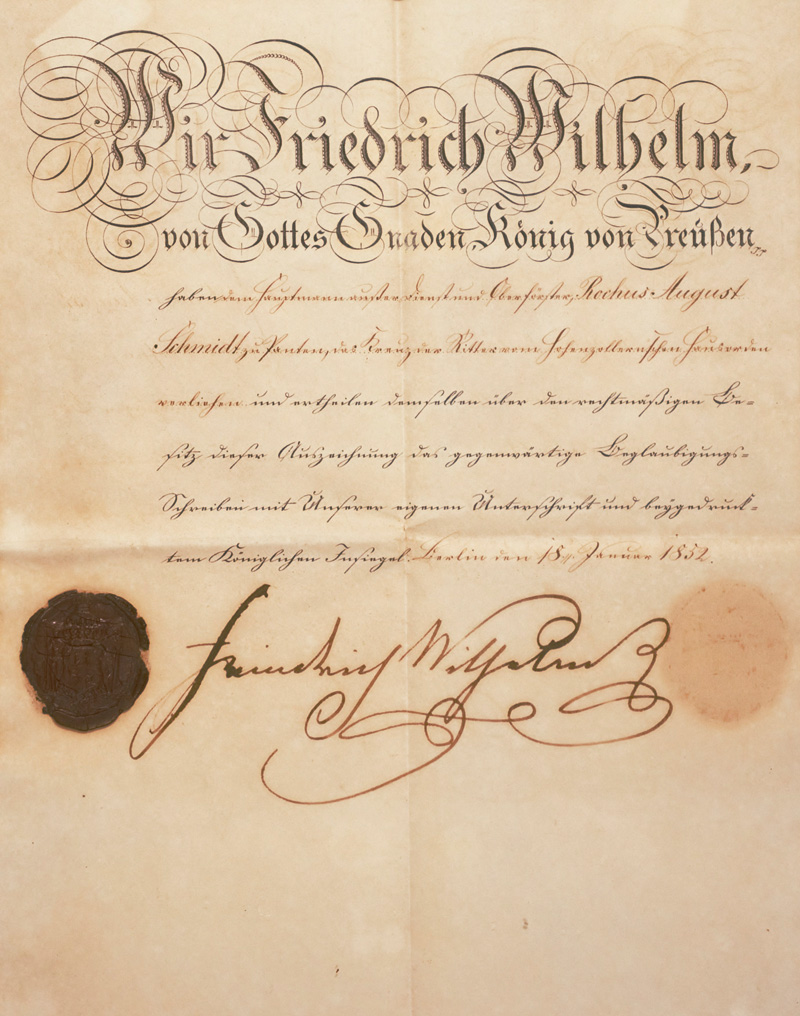 Wir Friedrich Wilhelm,
von Gottes Gnaden König von Preußen
haben dem Hauptmann außer Dienst und Oberförster, Rochus August
Schmidt zu Panten, das Kreuz der Ritter vom Hohenzollern'schen Hausorden
verliehen und ertheilen demselben über den rechtmäßigen Be-
sitz dieser Auszeichnung das gegenwärtige Beglaubigungs-
Schreiben mit Unserer eigenen Unterschrift und beygedruck-
tem Königlichen Insiegel. Berlin den 18. Januar 1852.
Friedrich Wilhelm